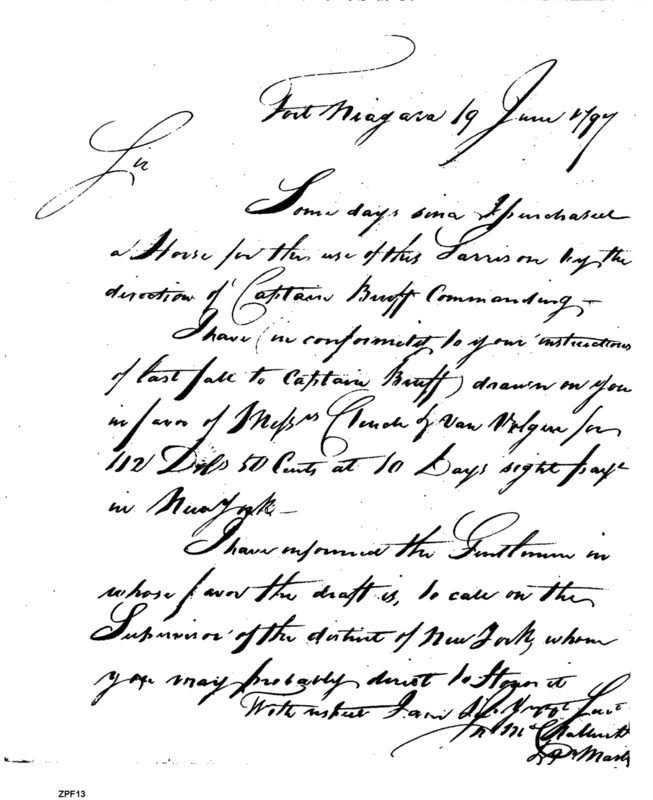 Fort Niagara 19 June 1797
Sir
Some days since I purchased
a Horse for the use of this Garrison by the
direction of Captain Bruff Commanding –
I have (in conformity to your instructions
of last fall to Captain Bruff) drawn on you
in favor of Messrs Clench & Van Volgen for
112 Dols 50 Cents at 10 Days sight payl
in New York –
I have informed the Gentlemen in
whose favor the draft is, to call on the
Supervisor of the district of New York, whom
you may probably direct to Honor it
With respect I am Sir Servt
Qr Mastr
ZPF13